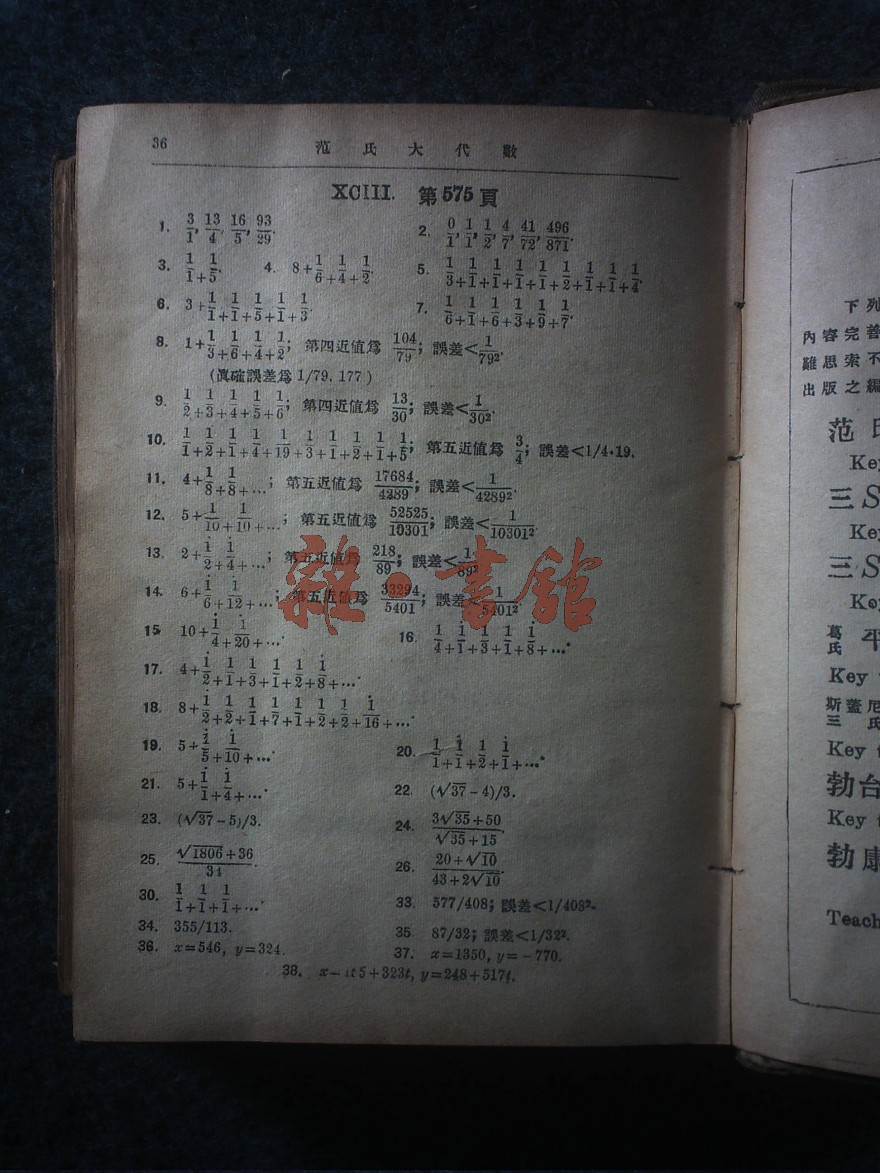 36 范氏大代數
XCIII. 第575頁
1. 3/1, 13/4, 16/5, 93/29. 2. 0/1, 1/1, 1/2, 4/7, 41/72, 496/871.
3. 1/1+ 1/5. 4. 8+ 1/6+ 1/4+ 1/2. 5. 1/3+ 1/1+ 1/1+ 1/1+ 1/1+ 1/2+ 1/1+ 1/1+ 1/4.
6. 3+ 1/1+ 1/1+ 1/5+ 1/1+ 1/3. 7. 1/6+ 1/1+ 1/6+ 1/3+ 1/9+ 1/7.
8. 1+ 1/3+ 1/6+ 1/4+ 1/2; 第四近値爲 104/79; 誤差<1/79².
(眞確誤差爲 1/79.177)
9. 1/2+ 1/3+ 1/4+ 1/5+ 1/6; 第四近値爲 13/30; 誤差<1/30².
10. 1/1+ 1/2+ 1/1+ 1/4+ 1/19+ 1/3+ 1/1+ 1/2+ 1/1+ 1/5; 第五近値爲 3/4; 誤差<1/4·19.
11. 4+ 1/8+ 1/8+...; 第五近値爲 17684/4289; 誤差<1/4289².
12. 5+ 1/10+ 1/10+...; 第五近値爲 52525/10301; 誤差<1/10301².
13. 2+ 1̇/2+ 1̇/4+...; 第五近値爲 218/89; 誤差<1/89²
14. 6+ 1̇/6+ 1̇/12+...; 第五近値爲 33294/5401; 誤差<1/5401².
雜·書館
15. 10+ 1̇/4+ 1̇/20+.... 16. 1/4+ 1̇/1+ 1/3+ 1/1+ 1̇/8+....
17. 4+ 1̇/2+ 1/1+ 1/3+ 1/1+ 1/2+ 1̇/8+....
18. 8+ 1̇/2+ 1/2+ 1/1+ 1/7+ 1/1+ 1/2+ 1/2+ 1̇/16+....
19. 5+ 1̇/5+ 1̇/10+.... 20. 1/1+ 1̇/1+ 1/2+ 1̇/1+....
21. 5+ 1̇/1+ 1̇/4+.... 22. (√37−4)/3.
23. (√37−5)/3. 24. (3√35+50)/(√35+15).
25. (√1806+36)/34 26. (20+√10)/(43+2√10).
30. 1/1+ 1/1+ 1/1+.... 33. 577/408; 誤差<1/408².
34. 355/113. 35. 87/32; 誤差<1/32².
36. x=546, y=324. 37. x=1350, y=−770.
38. 5+323t, y=248+517t.
下列
內容完善
雖思索不
出版之編
范
Key
三S
Key
三S
Key
葛氏平
Key
斯蓋尼
三氏
Key
勃台
Key
勃康
Teach